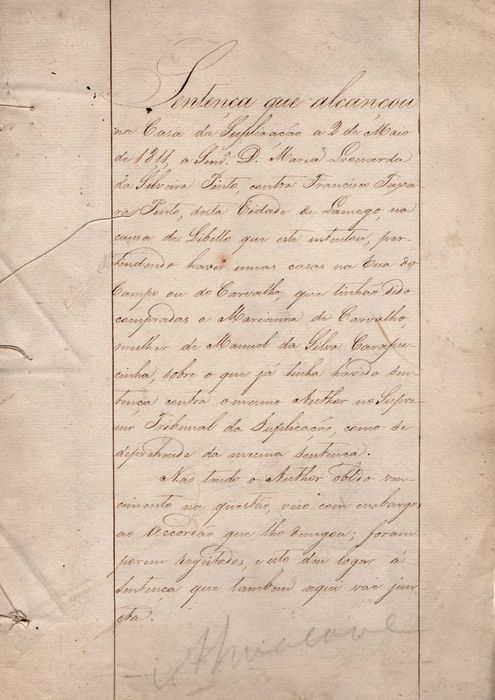 Sentença que alcançou
na Casa da Suplicação a 2 de Maio
de 1811, a Snrª D. Maria Leonarda
da Silveira Pinto, contra Francisco Teixei-
ra Pinto, desta Cidade de Lamego na
causa de Libello que este intentou, per-
tendendo haver umas casas na Rua do
Campo ou do Carvalho, que tinhão sido
compradas a Marianna de Carvalho,
mulher de Manuel da Silva Carapu-
cinha, sobre o que já tinha havido sen-
tença contra o mesmo Auther no Supre-
mo Tribunal da Suplicação, como se
deprehende da mesma sentença.
Não tendo o Auther obtido ven-
cimento na questão, veio com embargos
ao Accordão que lho denegou; foram
porem regeitados, e isto deu logar á
sentença que tambem aqui vae jun-
cta.